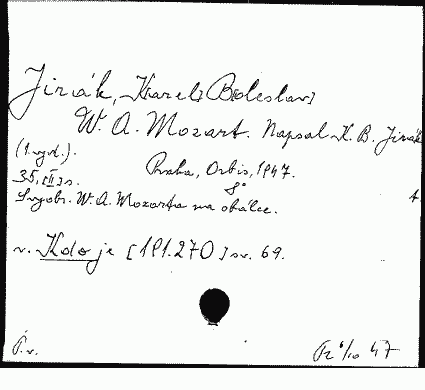 Jirák, Karel Boleslav]
W. A. Mozart. Napsal K. B. Jirák
(1. vyd.).
Praha, Orbis, 1947.
35, [II] s. 8°
S vyobr. W. A. Mozarta na obálce.
v. Kdo je [191.270] sv. 69.
P. v.
47